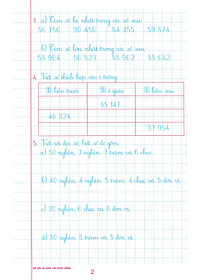 3. a) Tìm số bé nhất trong các số sau:
50 756 90 450 54 355 59 574
b) Tìm số lớn nhất trong các số sau:
55 904 50 523 55 902 55 652
4. Viết số thích hợp vào ô trống:
Số liền trước Số ở giữa Số liền sau
55 147
40 324
57 954
5. Viết rồi đọc số, biết số đó gồm:
a) 50 nghìn, 3 nghìn, 3 trăm và 6 chục.
b) 40 nghìn, 4 nghìn, 5 trăm, 4 chục và 5 đơn vị.
c) 20 nghìn, 6 chục và 6 đơn vị.
d) 50 nghìn, 5 trăm và 5 đơn vị.
2